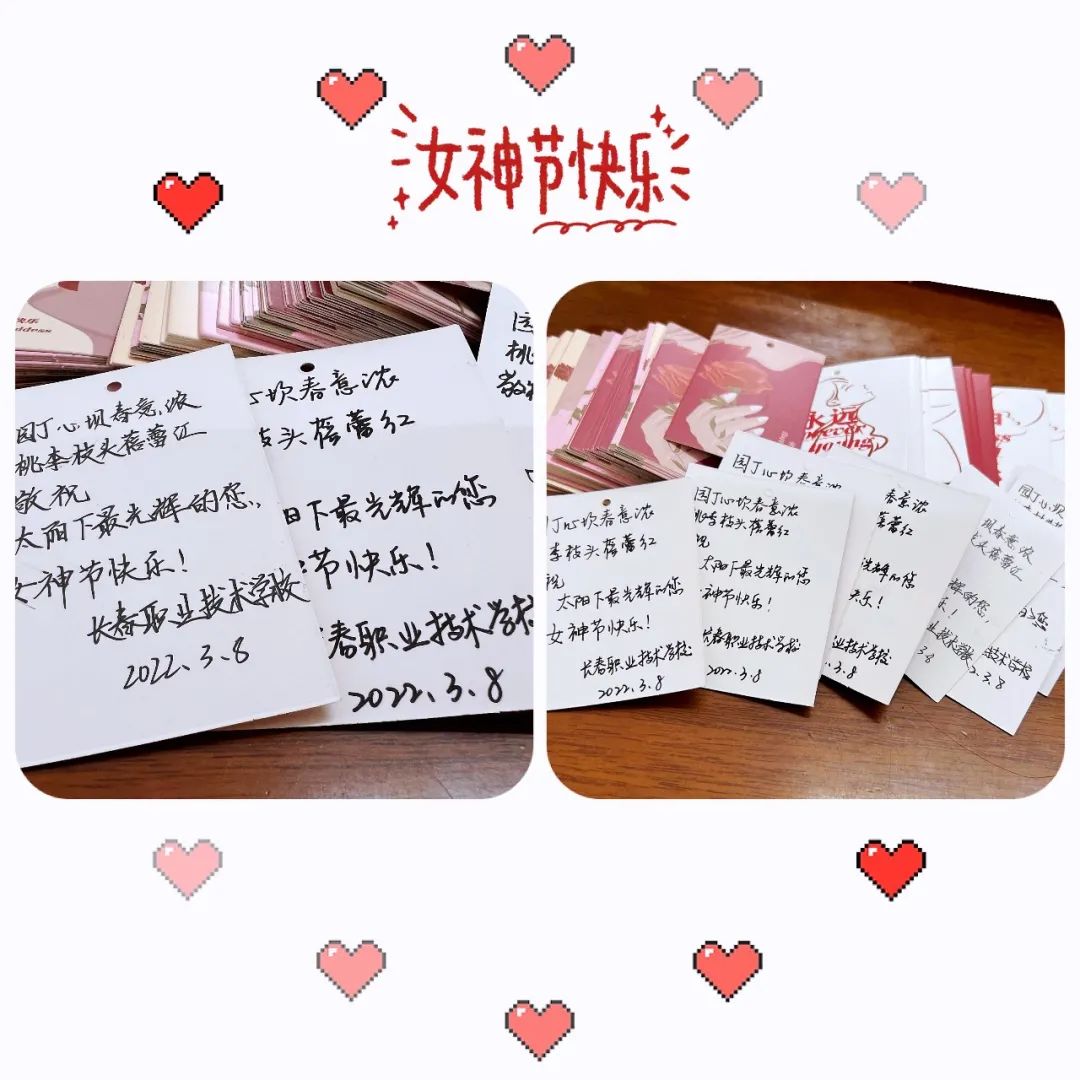 女神节快乐
快乐
ddess
园丁心坝春意浓
桃李枝头蓓蕾红
敬祝
太阳下最光辉的您,
女神节快乐!
长春职业技术学校
2022.3.8
心坎春意浓
枝头蓓蕾红
阳下最光辉的您
节快乐!
春职业技术学校
2022.3.8
园
桃
敬
永远
丁心坎春意浓
李枝头蓓蕾红
祝
太阳下最光辉的您
女神节快乐!
长春职业技术学校
2022.3.8
园丁心坎春意浓
园丁心坎春意浓
桃李枝头蓓蕾红
祝
太阳下最光辉的您
神节快乐!
长春职业技术学校
2022.3.8
春意浓
蓓蕾红
光辉的您
快乐!
业技术学校
.3.8
春意浓
枝头蓓蕾红
辉的您,
乐!
业技术学校
3.8
园丁心坎
您
技术学校
2.3.8